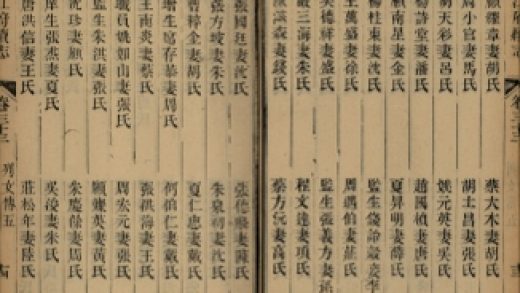 卷三十三
章妻胡氏 蔡大本妻胡氏
周小官妻馬氏 胡士昌妻張氏
胡天彩妻呂氏 姚元英妻吳氏
楊詩堂妻潘氏 趙國楨妻唐氏
顧南星妻金氏 夏昇明妻薛氏
楊桂東妻沈氏 監生錢
王萬盛妻徐氏 周鳴伯妻莊氏
吳德祥妻盛氏 監生張義方妻
嚴三海妻朱氏 程文達妻項氏
森妻錢氏 蔡方沅妻高氏
張國珏妻沈氏 張德 妻陳氏
張方坡妻朱氏 朱泉初妻沈氏
曹梓全妻胡氏 夏仁惠妻戴氏
增生 存恭妻周氏 何伯仁妻戴氏
王南炎妻蔡氏 張祺海妻王氏
職員姚如山妻張氏 周宏元妻張氏
監生朱洪妻張氏 顧 英妻黃氏
沈珍妻顧氏 朱慶餘妻周氏
庠生張燕妻夏氏 吳 妻朱氏
唐洪信妻王氏 莊松年妻陸氏
府續志 卷三十三 列女傳五